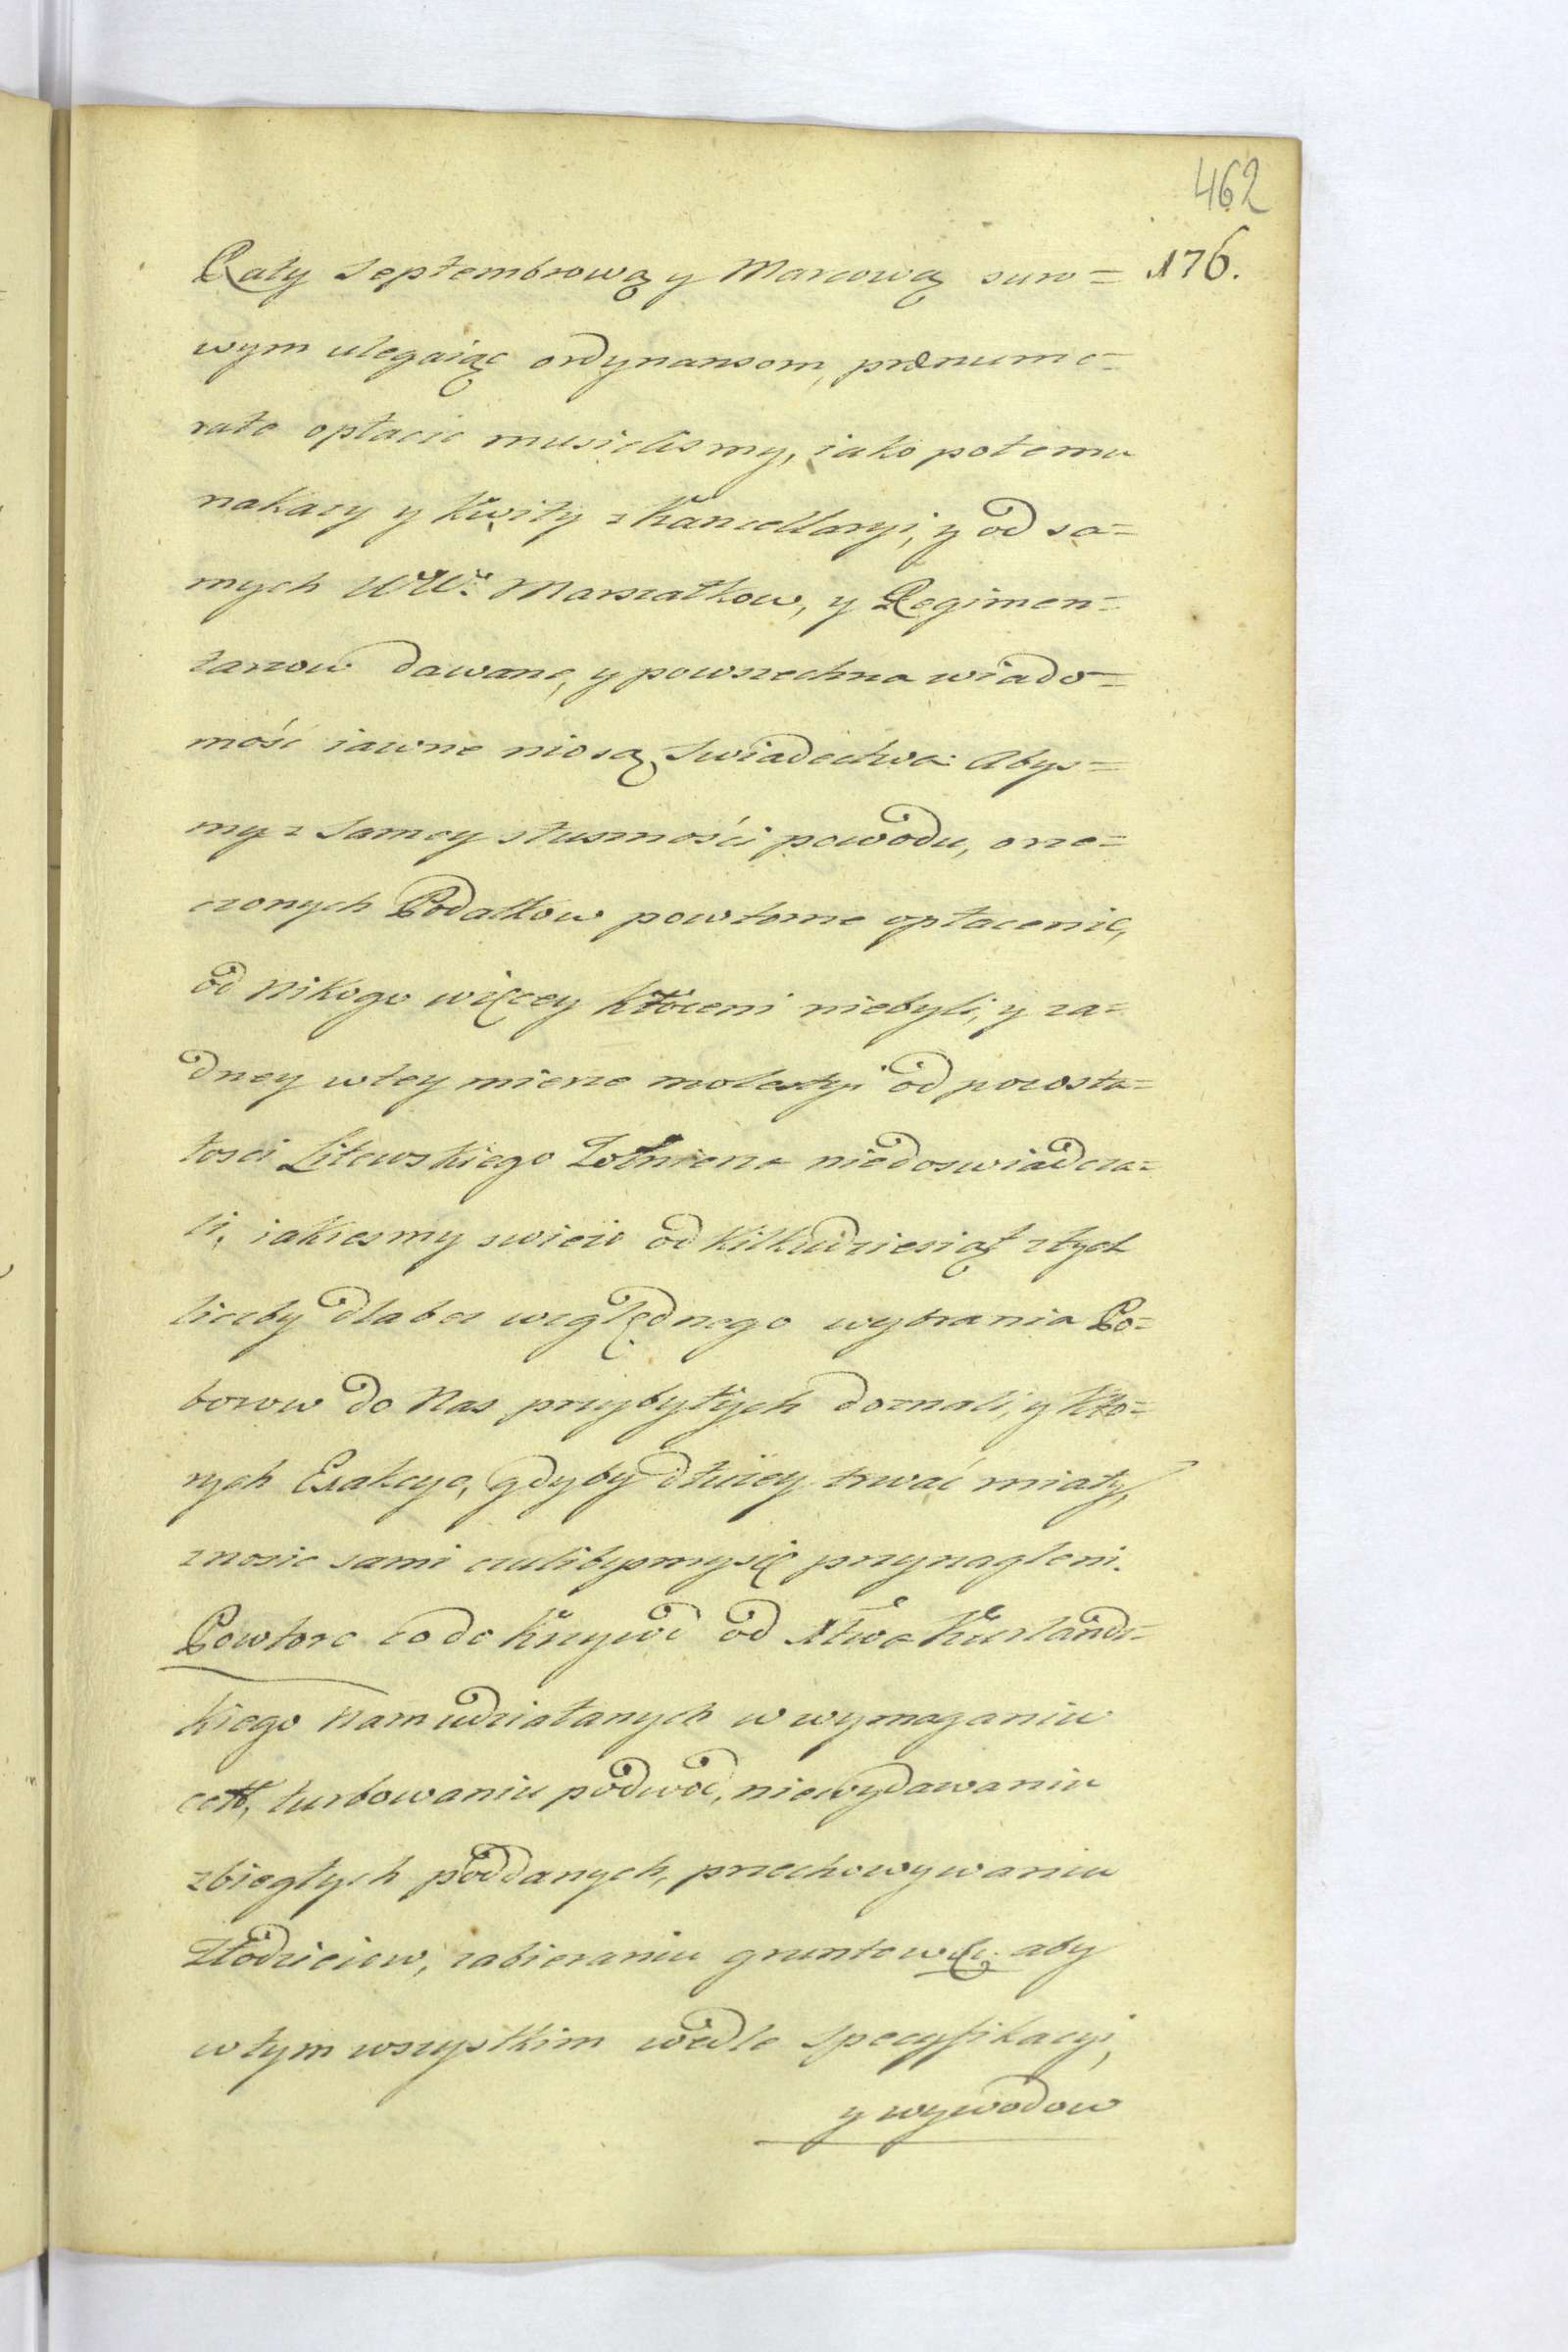 462
176.
Raty Septembrową y Marcową suro=
wym ulegaiąc ordynansom, prænume=
rate opłacic musielismy, iako potemu
nakazy y kwity z Kancellaryi, y od sa=
mych WW. Marszałkow, y Regimen=
tarzow dawane, y powszechna wiado=
mość iawne niosą Swiadectwa: Abys=
my z Samey słuszności powodu, orze=
czonych Podatkow powtorne opłacenie,
od Nikogo więcey kłoceni niebyli, y za=
dney wtey mierze molestyi od pozosta=
łosci Litewskiego Zołnierza niedoswiadcza=
li, iakiesmy swieżo od kilkudziesiąt ztych
liczby dla bez względnego wybrania Po=
borow do Nas przybyłych doznali, y kto=
rych Exakcye, gdyby dłużey trwać miały,
znosic sami czulibysmysię przynagleni.
Powtore co do krzywd od Xtwa Kurlands=
kiego Nam udziałanych w wymaganiu
cełł, turbowaniu podwod, niewydawaniu
zbiegłych poddanych, przechowywaniu
Złodzieiow, zabieraniu gruntow &c. aby
wtym wszystkim wedle Specyfikacyi,
y wywodow